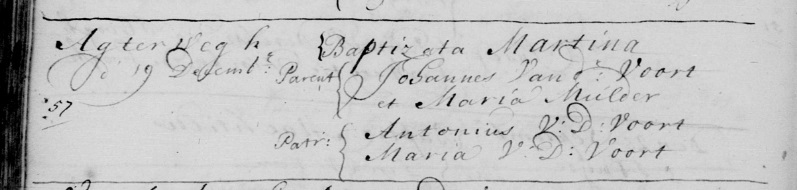 Agterwegh
d 19 Decembr
57
Baptizata Martina
Parent: Johannes Vand: Voort
et Maria Mulder
Patr: Antonius V: D: Voort
Maria V: D: Voort